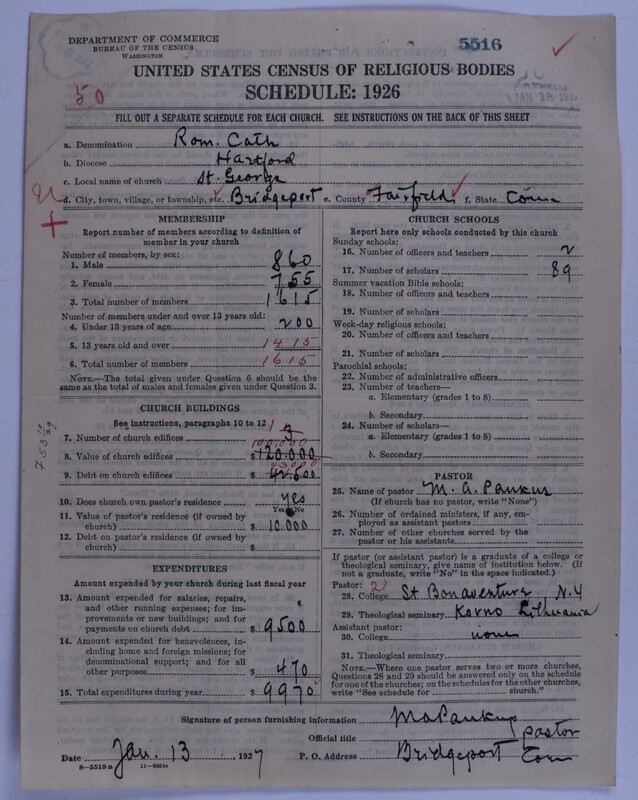 DEPARTMENT OF COMMERCE
BUREAU OF THE CENSUS
WASHINGTON
5516
50
JAN 28
UNITED STATES CENSUS OF RELIGIOUS BODIES
SCHEDULE: 1926
FILL OUT A SEPARATE SCHEDULE FOR EACH CHURCH. SEE INSTRUCTIONS ON THE BACK OF THIS SHEET
a. Denomination Rom. Cath
b. Diocese Hartford
c. Local name of church St. George
d. City, town, village, or township, etc. Bridgeport e. County Fairfield f. State Conn
MEMBERSHIP
Report number of members according to definition of
member in your church
Number of members, by sex:
1. Male 860
2. Female 755
3. Total number of members 1615
Number of members under and over 13 years old:
4. Under 13 years of age 200
5. 13 years old and over 1415
6. Total number of members 1615
NOTE.—The total given under Question 6 should be the
same as the total of males and females given under Question 3.
CHURCH BUILDINGS
See instructions, paragraphs 10 to 12
7. Number of church edifices 3 1
100,000
8. Value of church edifices $ 120.000
9. Debt on church edifices $ 42.500
10. Does church own pastor's residence yes
Yes No
11. Value of pastor's residence (if owned by
church) $ 10.000
12. Debt on pastor's residence (if owned by
church) $
EXPENDITURES
Amount expended by your church during last fiscal year
13. Amount expended for salaries, repairs,
and other running expenses; for im-
provements or new buildings; and for
payments on church debt $ 9500
14. Amount expended for benevolences, in-
cluding home and foreign missions; for
denominational support; and for all
other purposes $ 470
15. Total expenditures during year $ 9970
CHURCH SCHOOLS
Report here only schools conducted by this church
Sunday schools:
16. Number of officers and teachers 2
17. Number of scholars 89
Summer vacation Bible schools:
18. Number of officers and teachers
19. Number of scholars
Week-day religious schools:
20. Number of officers and teachers
21. Number of scholars
Parochial schools:
22. Number of administrative officers
23. Number of teachers—
a. Elementary (grades 1 to 8)
b. Secondary
24. Number of scholars—
a. Elementary (grades 1 to 8)
b. Secondary
PASTOR
25. Name of pastor M. A. Pankus
(If church has no pastor, write "None")
26. Number of ordained ministers, if any, em-
ployed as assistant pastors
27. Number of other churches served by the
pastor or his assistants
If pastor (or assistant pastor) is a graduate of a college or
theological seminary, give name of institution below. (If
not a graduate, write "No" in the space indicated.)
Pastor: 2
28. College St Bonaventure N.Y
29. Theological seminary Kovno Lithuania
Assistant pastor:
30. College none
31. Theological seminary
NOTE.—Where one pastor serves two or more churches,
Questions 28 and 29 should be answered only on the schedule
for one of the churches; on the schedules for the other churches,
write "See schedule for church."
Signature of person furnishing information M A Pankus
Official title pastor
Date Jan. 13, 1927 P. O. Address Bridgeport Conn
8—5518a 11—9254